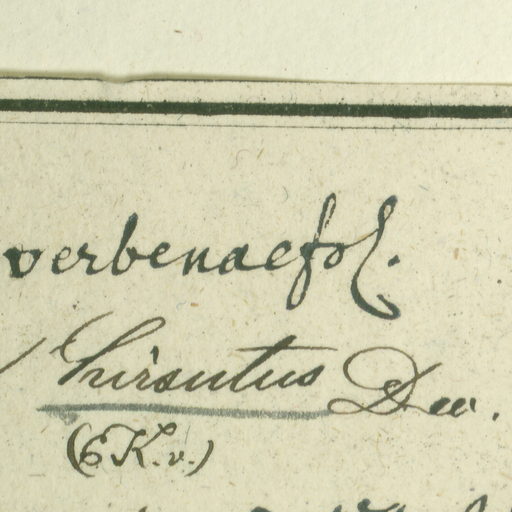 verbenaefol.
hirsutus Dec.
(EK.v.)